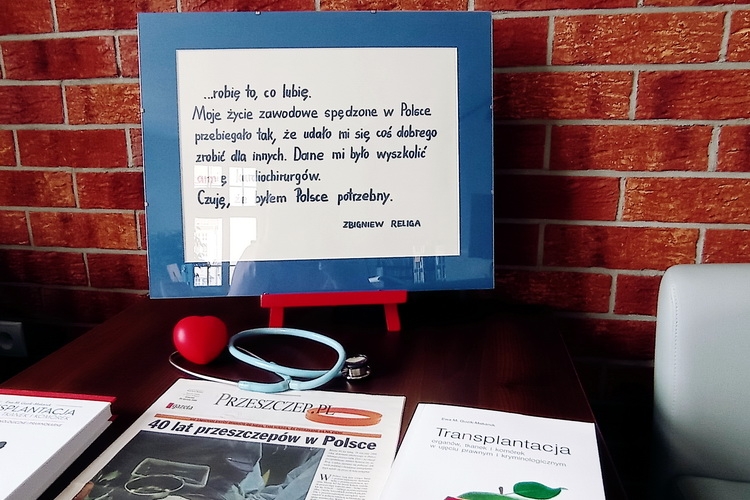 ...robię to, co lubię.
Moje życie zawodowe spędzone w Polsce
przebiegało tak, że udało mi się coś dobrego
zrobić dla innych. Dane mi było wyszkolić
kardiochirurgów.
Czuję, że byłem Polsce potrzebny.
ZBIGNIEW RELIGA
gazeta
PRZESZCZEP.PL
40 lat przeszczepów w Polsce
Transplantacja
organów, tkanek i komórek
w ujęciu prawnym i kryminologicznym